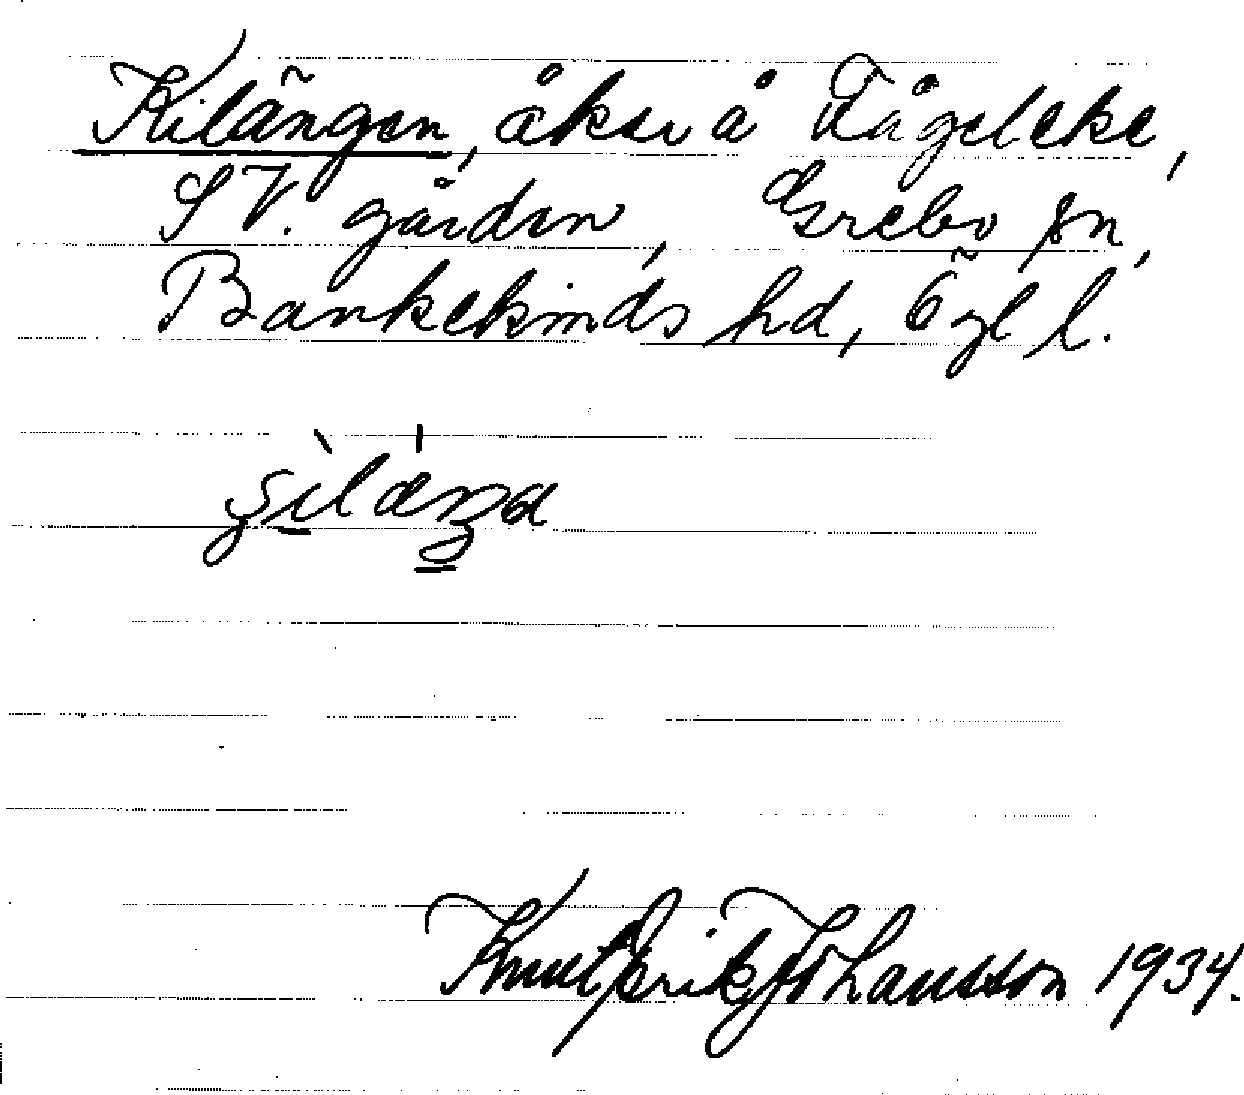 Kilängen, åker å Fågeleke,
SV. gården, Grebo sn,
Bankekinds hd, Ögl l.
Knut Erik Johansson 1934.